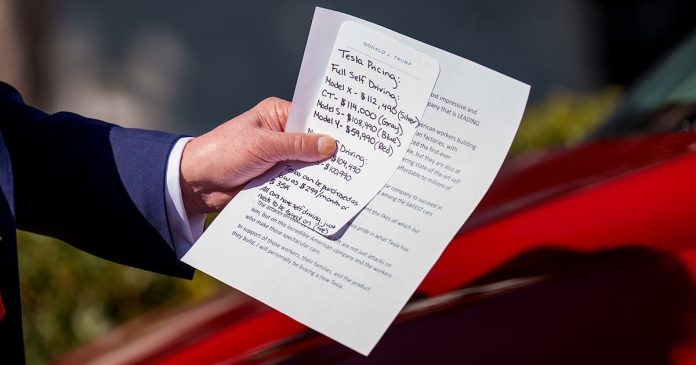 DONALD J. TRUMP
Tesla Pricing:
Full Self Driving:
Model X - $112,490 (Silver)
CT - $114,000 (Gray)
Model S - $108,990 (Blue)
Model Y - $59,990 (Red)
Driving:
$104,490
Teslas can be purchased as
low as $299/month or
$35K
All cars have self driving, just
needs to be turned on
most impressive and
company that is LEADING
American workers building
American factories, with
the first ever
ble, but they are also at
ering state of the art self
affordable to millions of
ar company to succeed in
among the SAFEST cars
the likes of which our
pride in what Tesla has
The attacks
are not just attacks on
him, but on this incredible American company and the workers
who make these spectacular cars.
In support of those workers, their families, and the product
they build, I will personally be buying a new Tesla.